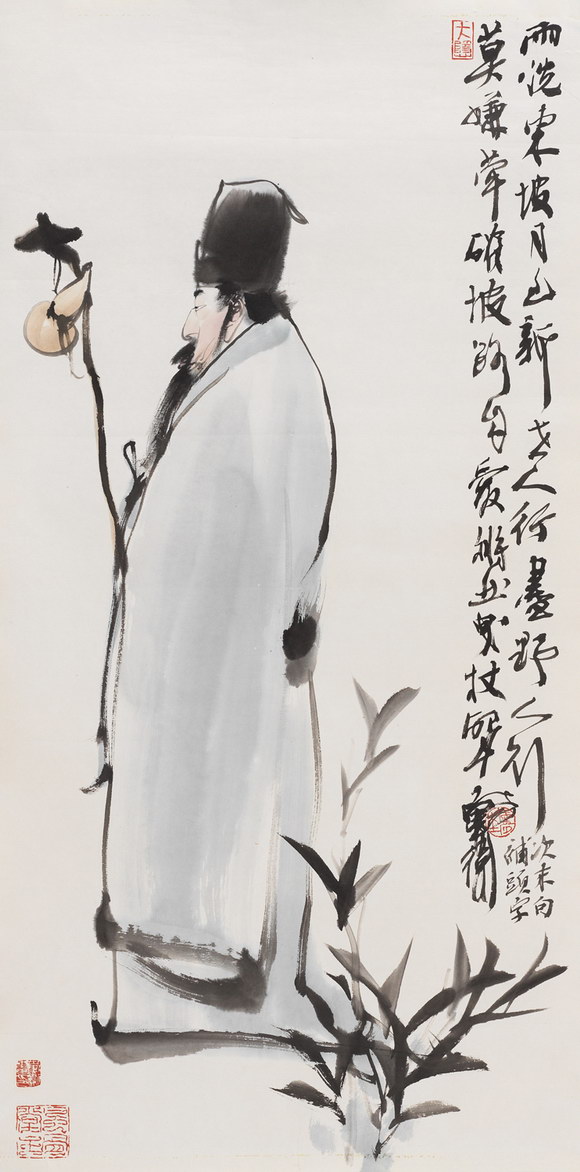 雨洗東坡月色 市人行盡野人行
莫嫌犖確坡路自愛然曳杖聲
次末句
補頭字